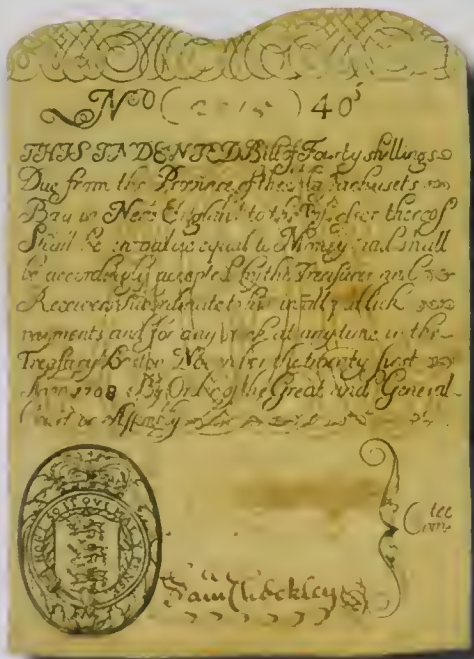 No ( ) 40s
THIS INDENTED Bill of Fourty shillings
Due from the Province of the Massachusets
Bay in New England to the Possessor thereof
Shall be in value equal to Money and shall
be accordingly accepted by the Treasurer and
Receivers Subordinate to him in all Publick
payments and for any Stock at any time in the
Treasury Boston November the twenty first
Anno 1708 By Order of the Great and General
Court or Assembly
HONI SOIT QUI MAL Y PENSE
Sam Checkley
Com tee